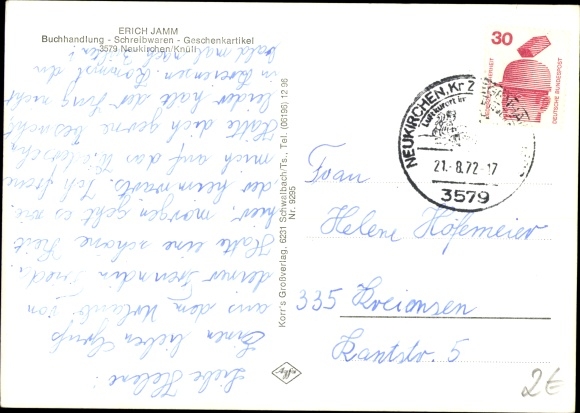 ERICH JAMM
Buchhandlung - Schreibwaren - Geschenkartikel
3579 Neukirchen/Knüll
Liebe Helene!
Einen lieben Gruß
aus dem Urlaub von
deiner Freundin Fried.
Hatte eine schöne Zeit
hier, morgen geht es wie-
der heimwärts. Ich freue
mich auf das
Hätte dich gerne besucht,
leider hält der Zug nicht
in Kreiensen. Kommst du
bald mal nach
Korr's Großverlag, 6231 Schwalbach/Ts., Tel. (06196) 12 96
Nr. 9295
30
DEUTSCHE BUNDESPOST
NEUKIRCHEN, Kr Z
Luftkurort im
21.-8.72-17
3579
Frau
Helene Hofemeier
335 Kreiensen
Kantstr. 5
2€